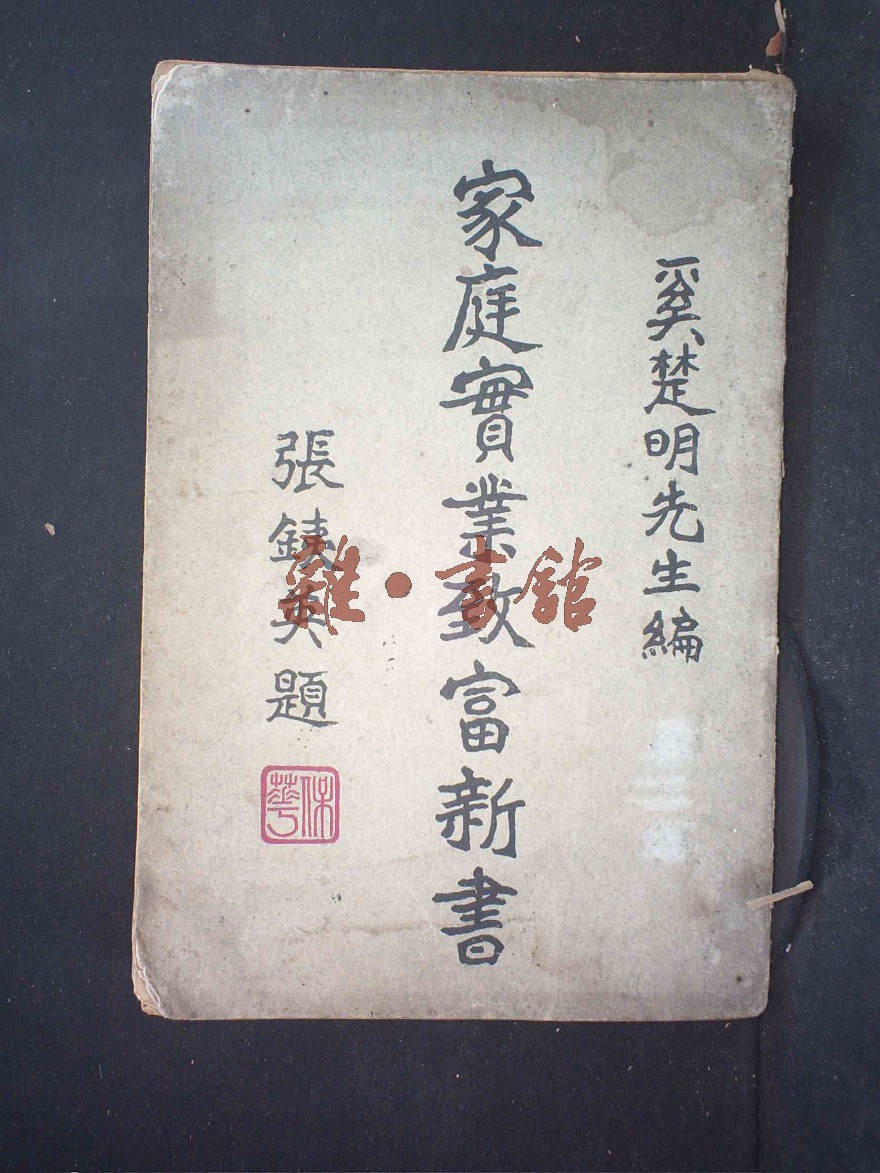 奚楚明先生編
家庭實業致富新書
張鉽英題
保華
雜·書館